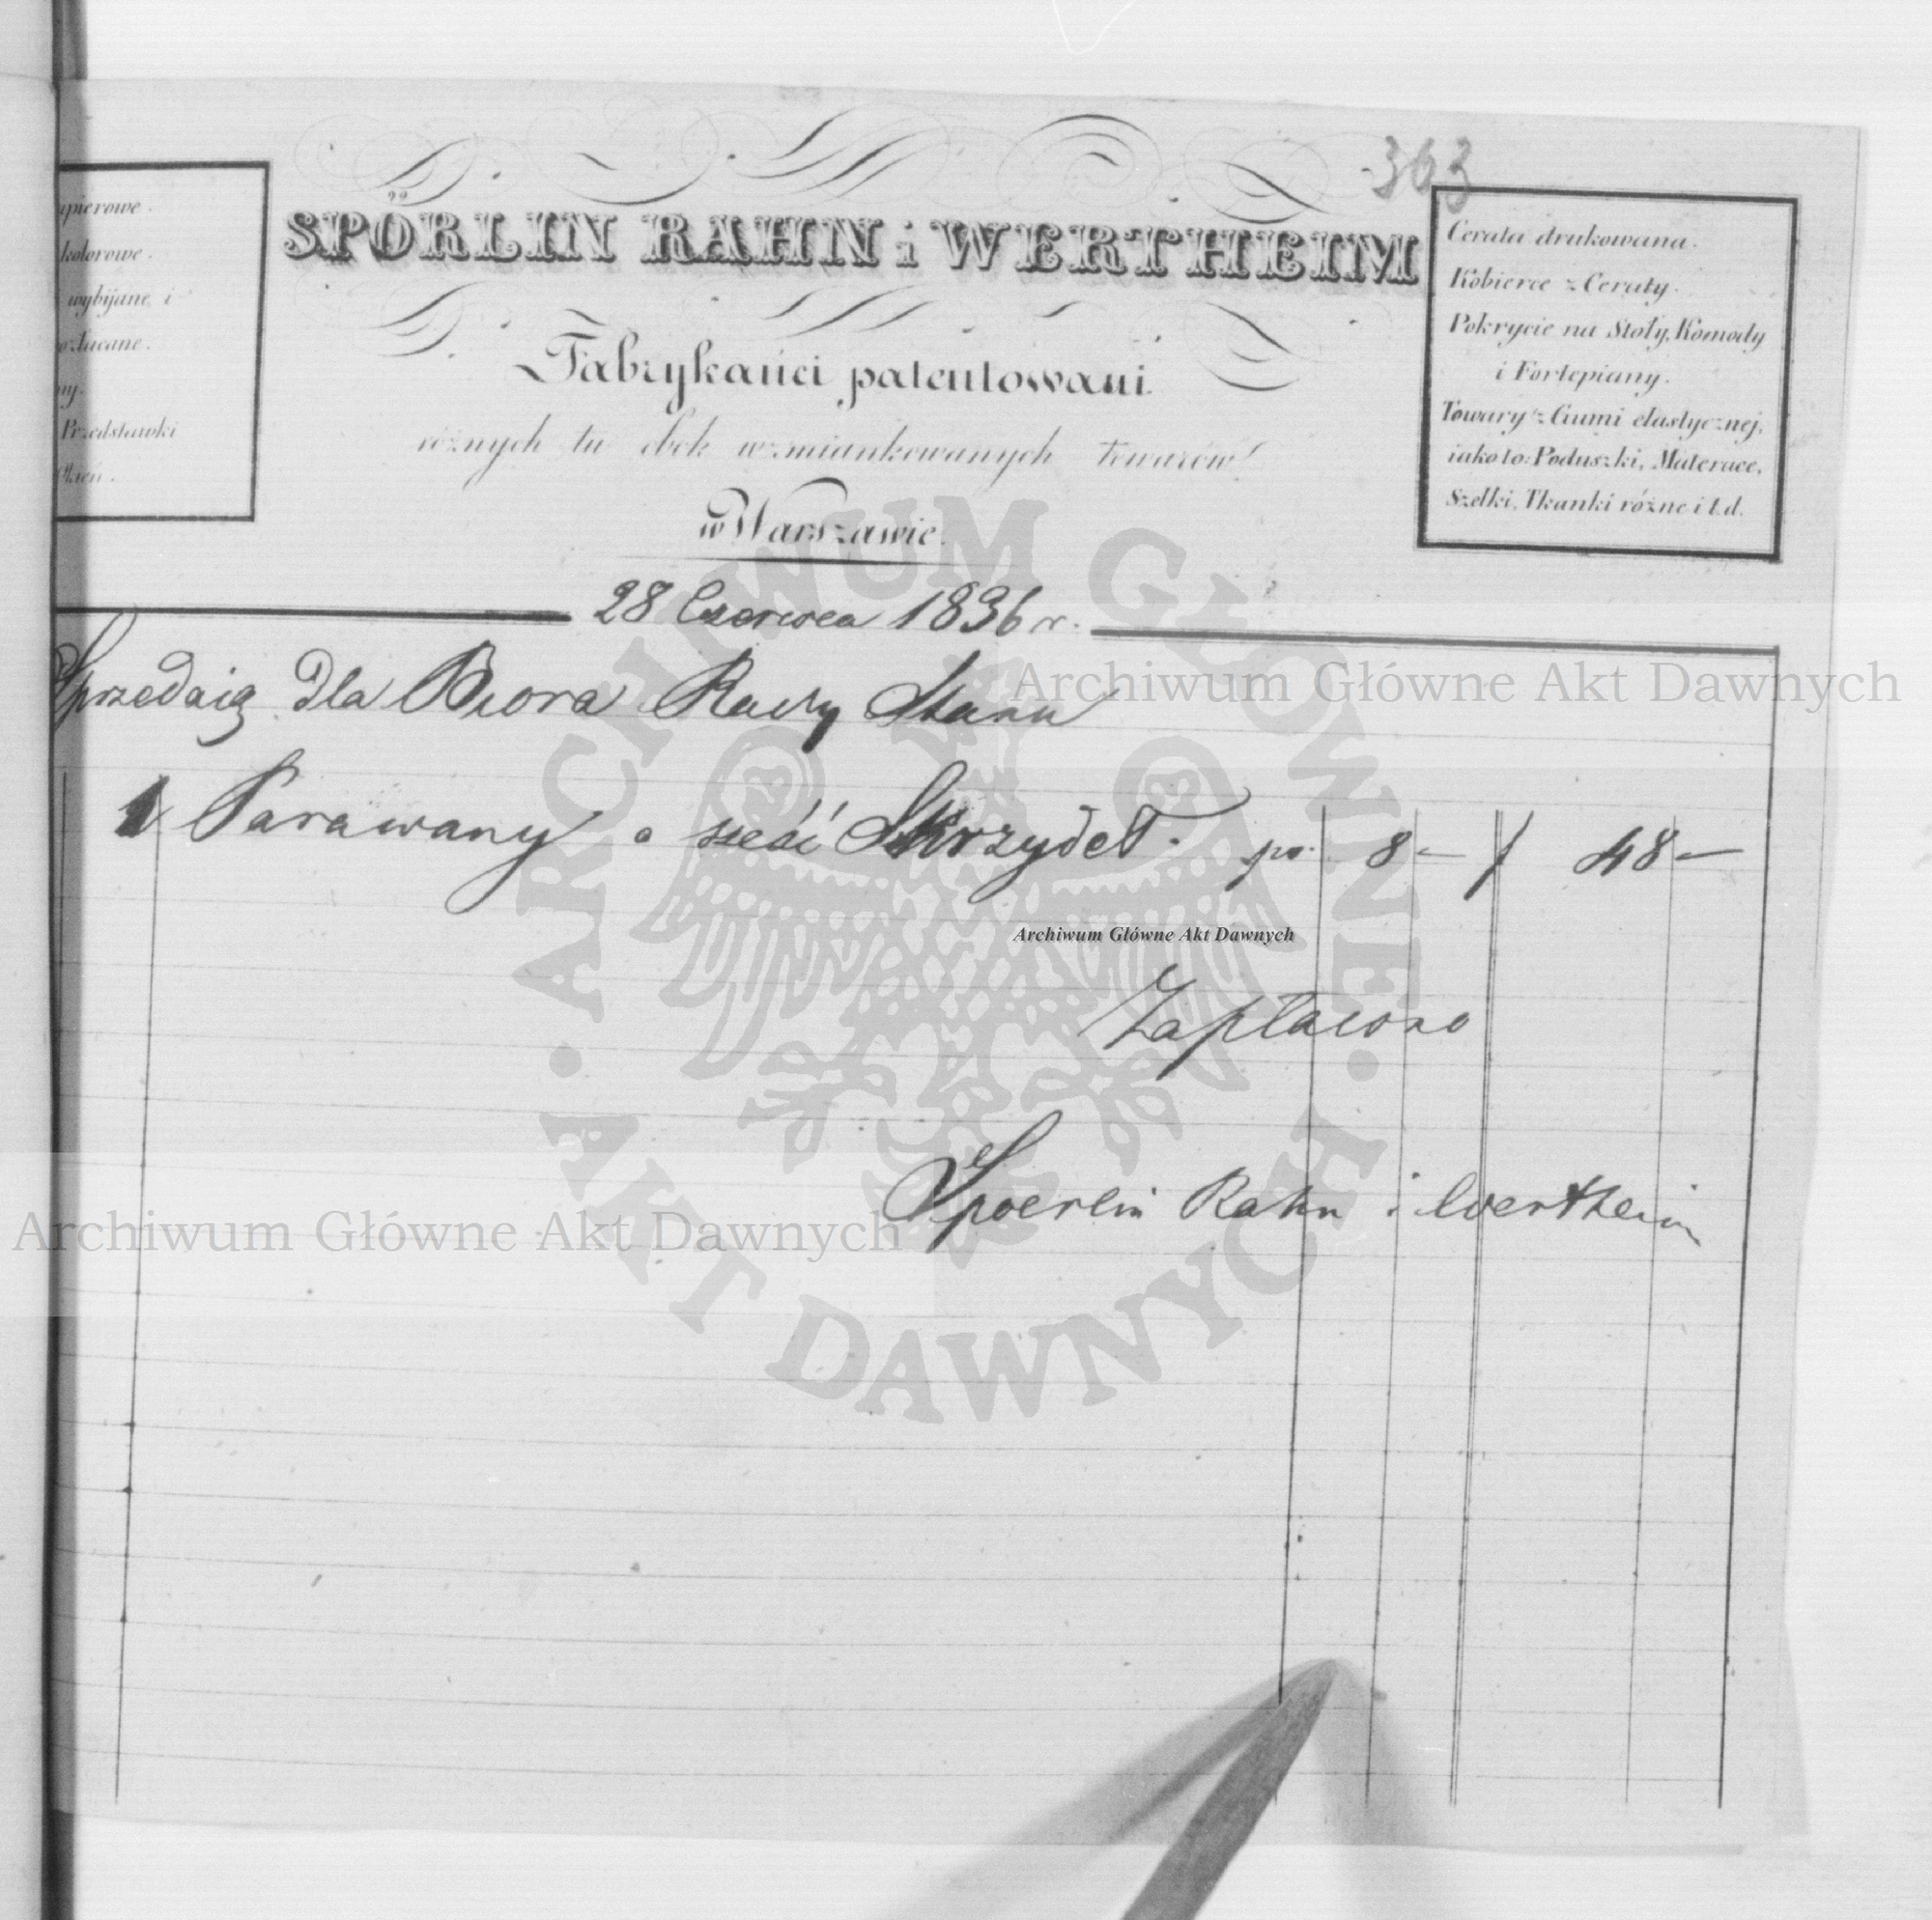 363
SPÖRLIN RAHN i WERTHEIM
Fabrykańci patentowani
różnych tu obok wzmiankowanych towarów
w Warszawie.
apierowe.
kolorowe.
wybijane i
ozłacane.
ny.
Przedstawki
Okień.
Cerata drukowana.
Kobierce z Ceraty.
Pokrycie na Stoły, Komody
i Fortepiany.
Towary z Gumi elastycznej,
iako to: Poduszki, Materace,
Szelki, Tkanki różne i t.d.
28 Czerwca 1836 r.
Sprzedaią dla Biora Rady Stanu
1 Parawany o sześć Skrzydeł. po. 8 — f 48 —
Zapłacono
Spoerlin Rahn i Wertheim
Archiwum Główne Akt Dawnych
Archiwum Główne Akt Dawnych
Archiwum Główne Akt Dawnych
ARCHIWUM GŁÓWNE · AKT DAWNYCH ·